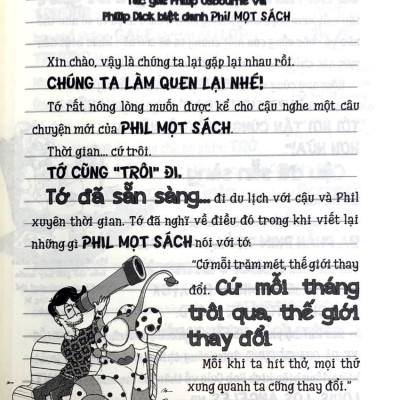 Tác giả: Philip Osbourne và
Philip Dick biệt danh Phil MỌT SÁCH
Xin chào, vậy là chúng ta lại gặp lại nhau rồi.
CHÚNG TA LÀM QUEN LẠI NHÉ!
Tớ rất nóng lòng muốn được kể cho cậu nghe một câu
chuyện mới của PHIL MỌT SÁCH.
Thời gian... cứ trôi.
TỚ CŨNG "TRÔI" ĐI.
Tớ đã sẵn sàng... đi du lịch với cậu và Phil
xuyên thời gian. Tớ đã nghĩ về điều đó trong khi viết lại
những gì PHIL MỌT SÁCH nói với tớ:
"Cứ mỗi trăm mét, thế giới thay
đổi. Cứ mỗi tháng
trôi qua, thế giới
thay đổi.
Mỗi khi ta hít thở, mọi thứ
xung quanh ta cũng thay đổi."